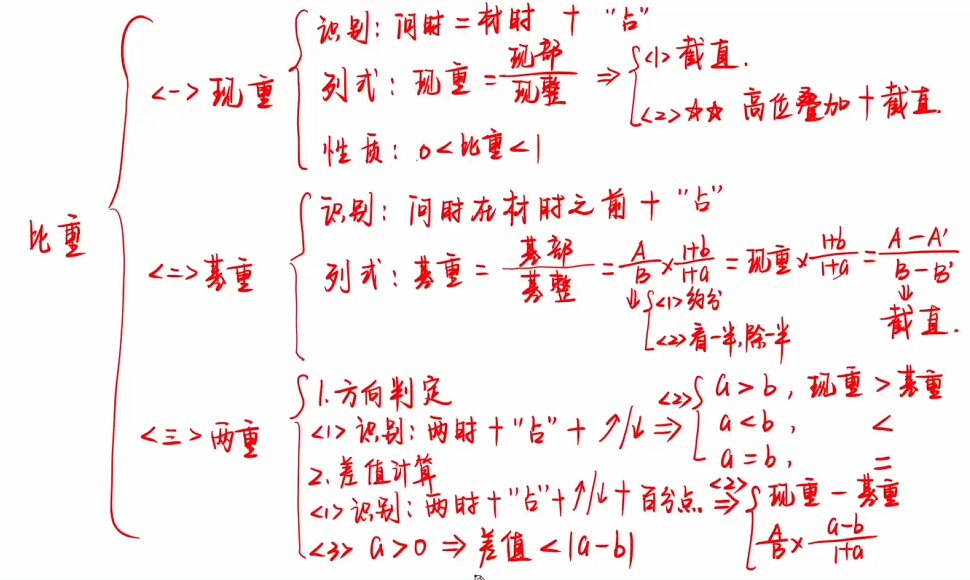 比重
<一> 现重
识别: 问时 = 材时 + “占”
列式: 现重 = 现部/现整 ⇒ <1> 截直.
<2> ☆☆ 高位叠加 + 截直.
性质: 0 < 比重 < 1
<二> 基重
识别: 问时在材时之前 + “占”
列式: 基重 = 基部/基整 = A/B × 1+b/1+a = 现重 × 1+b/1+a = A-A'/B-B'
⇓ <1> 约分
<2> 看一半, 除一半
⇓ 截直.
<三> 两重
1. 方向判定
<1> 识别: 两时 + “占” + ↑/↓ ⇒ <2> a > b, 现重 > 基重
a < b, <
a = b, =
2. 差值计算
<1> 识别: 两时 + “占” + ↑/↓ + 百分点. ⇒ <2> 现重 - 基重
A/B × a-b/1+a
<3> a > 0 ⇒ 差值 < |a-b|